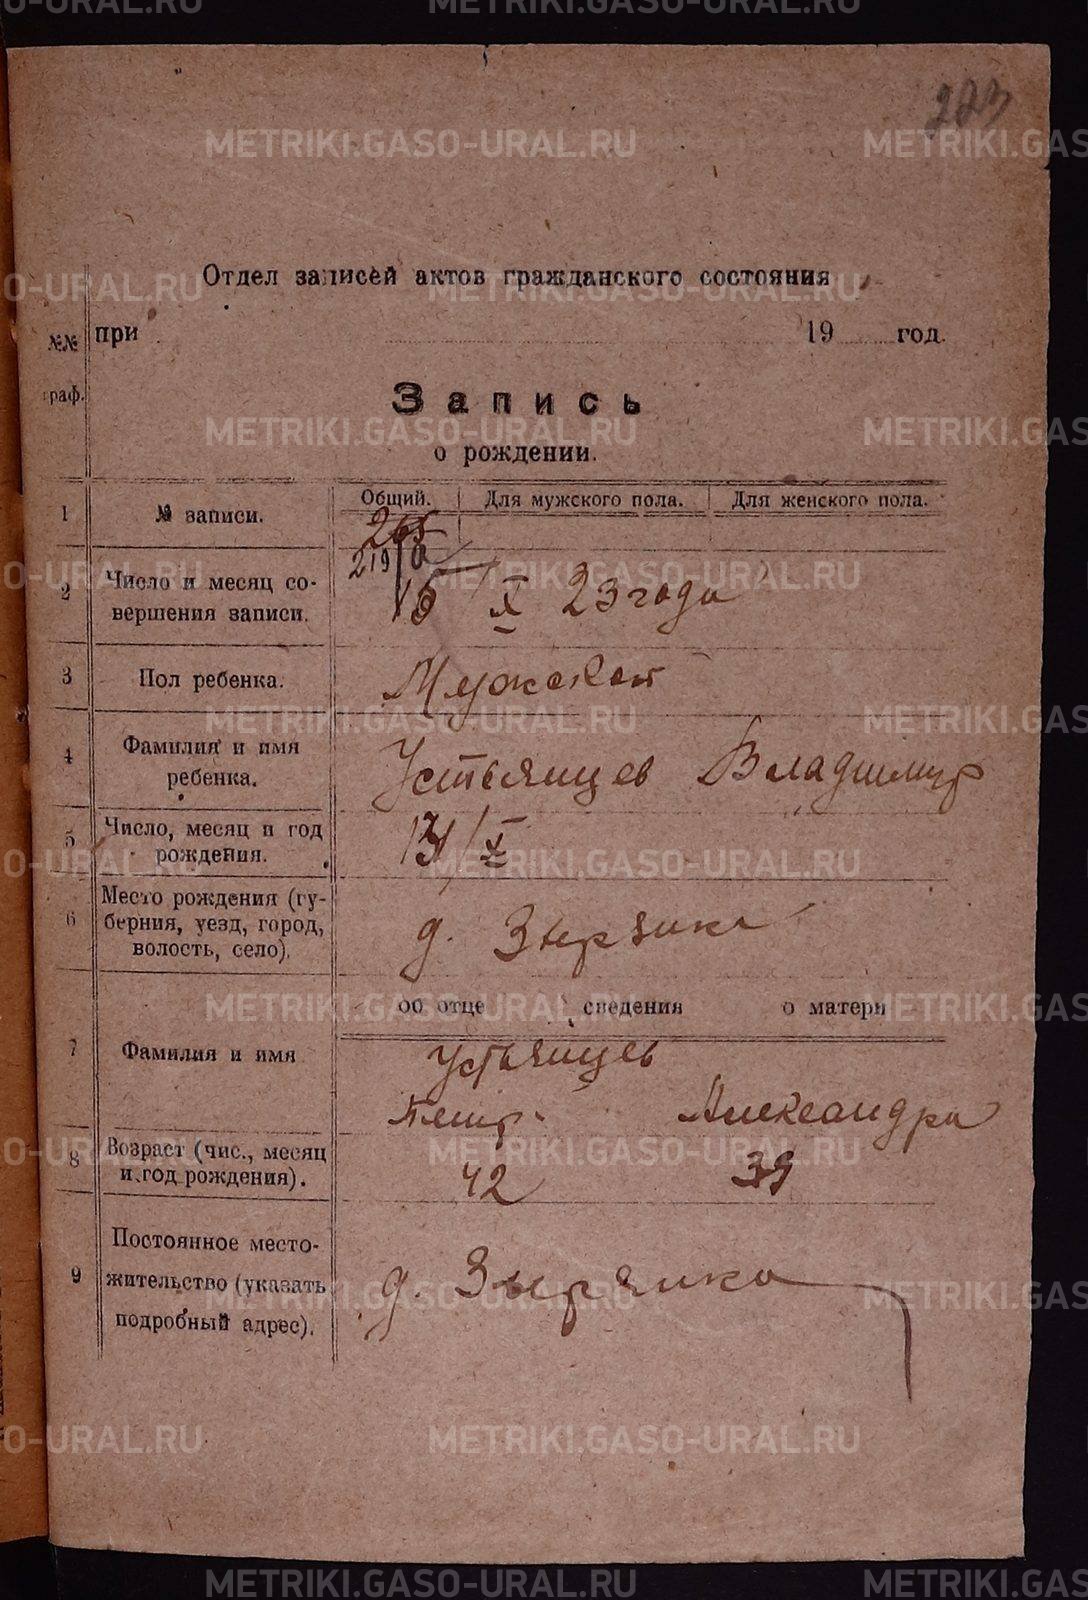 223
Отдел записей актов гражданского состояния
при 19 год.
№№ граф.
Запись
о рождении.
1 № записи. Общий. Для мужского пола. Для женского пола.
265
219
2 Число и месяц со-
вершения записи. 16/X 23 года
3 Пол ребенка. Мужской
4 Фамилия и имя
ребенка. Устьянцев Владимир
5 Число, месяц и год
рождения. /X
6 Место рождения (гу-
берния, уезд, город,
волость, село). д. Зырянка
об отце сведения о матери
7 Фамилия и имя Устьянцев
Петр. Александра
8 Возраст (чис., месяц
и год рождения). 42 39
9 Постоянное место-
жительство (указать
подробный адрес). д. Зырянка
METRIKI.GASO-URAL.RU